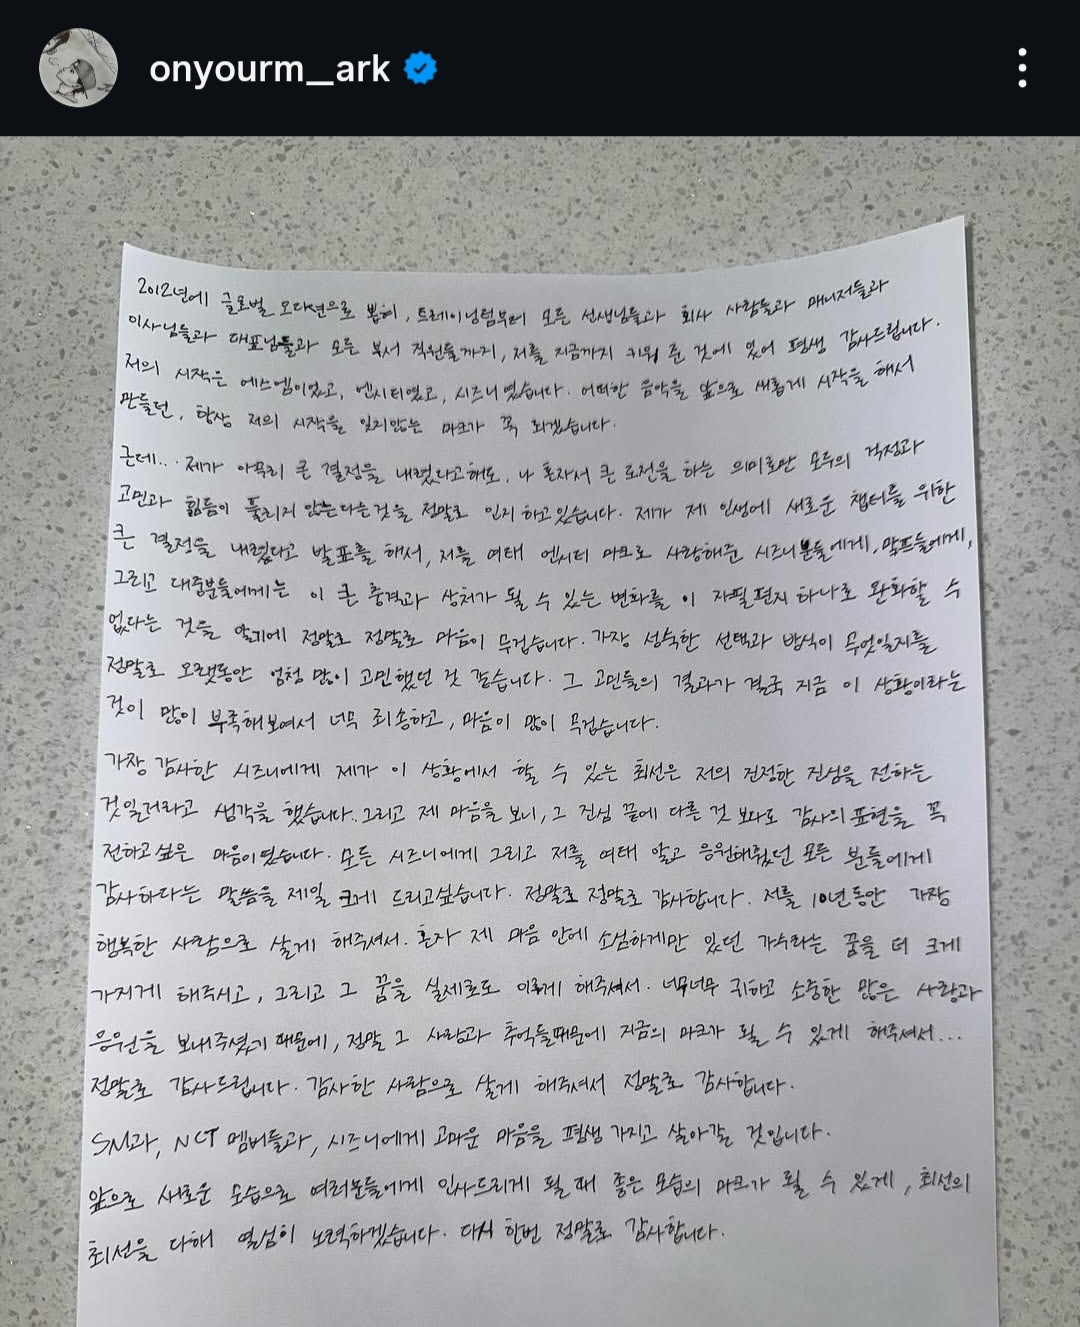 onyourm__ark
2012년에 글로벌 오디션으로 뽑혀, 트레이닝팀부터 모든 선생님들과 회사 사람들과 매니저들과
이사님들과 대표님들과 모든 부서 직원들까지, 저를 지금까지 키워 준 것에 있어 평생 감사드립니다.
저의 시작은 에스엠이었고, 엔시티였고, 시즈니였습니다. 어떠한 음악을 앞으로 새롭게 시작을 해서
만들던, 항상 저의 시작을 잊지않는 마크가 꼭 되겠습니다.
근데... 제가 아무리 큰 결정을 내렸다고해도, 나 혼자서 큰 도전을 하는 의미로만 모두의 걱정과
고민과 힘듦이 풀리지 않는다는것을 정말로 인지 하고있습니다. 제가 제 인생에 새로운 챕터를 위한
큰 결정을 내렸다고 발표를 해서, 저를 여태 엔시티 마크로 사랑해준 시즈니분들에게, 맘프들에게,
그리고 대중분들에게는 이 큰 충격과 상처가 될 수 있는 변화를 이 자필편지 하나로 완화할 수
없다는 것을 알기에 정말로 정말로 마음이 무겁습니다. 가장 성숙한 선택과 방식이 무엇일지를
정말로 오랫동안 엄청 많이 고민했던 것 같습니다. 그 고민들의 결과가 결국 지금 이 상황이라는
것이 많이 부족해보여서 너무 죄송하고, 마음이 많이 무겁습니다.
가장 감사한 시즈니에게 제가 이 상황에서 할 수 있는 최선은 저의 진정한 진심을 전하는
것일거라고 생각을 했습니다. 그리고 제 마음을 보니, 그 진심 끝에 다른 것 보다도 감사의 표현을 꼭
전하고싶은 마음이였습니다. 모든 시즈니에게 그리고 저를 여태 알고 응원해줬던 모든 분들에게
감사하다는 말씀을 제일 크게 드리고싶습니다. 정말로 정말로 감사합니다. 저를 10년동안 가장
행복한 사람으로 살게 해주셔서. 혼자 제 마음 안에 소심하게만 있던 가수라는 꿈을 더 크게
가지게 해주시고, 그리고 그 꿈을 실제로도 이루게 해주셔서. 너무너무 귀하고 소중한 많은 사랑과
응원을 보내주셨기 때문에, 정말 그 사랑과 추억들때문에 지금의 마크가 될 수 있게 해주셔서...
정말로 감사드립니다. 감사한 사람으로 살게 해주셔서 정말로 감사합니다.
SM과, NCT 멤버들과, 시즈니에게 고마운 마음을 평생 가지고 살아갈 것입니다.
앞으로 새로운 모습으로 여러분들에게 인사드리게 될 때 좋은 모습의 마크가 될 수 있게, 최선의
최선을 다해 열심히 노력하겠습니다. 다시 한번 정말로 감사합니다.